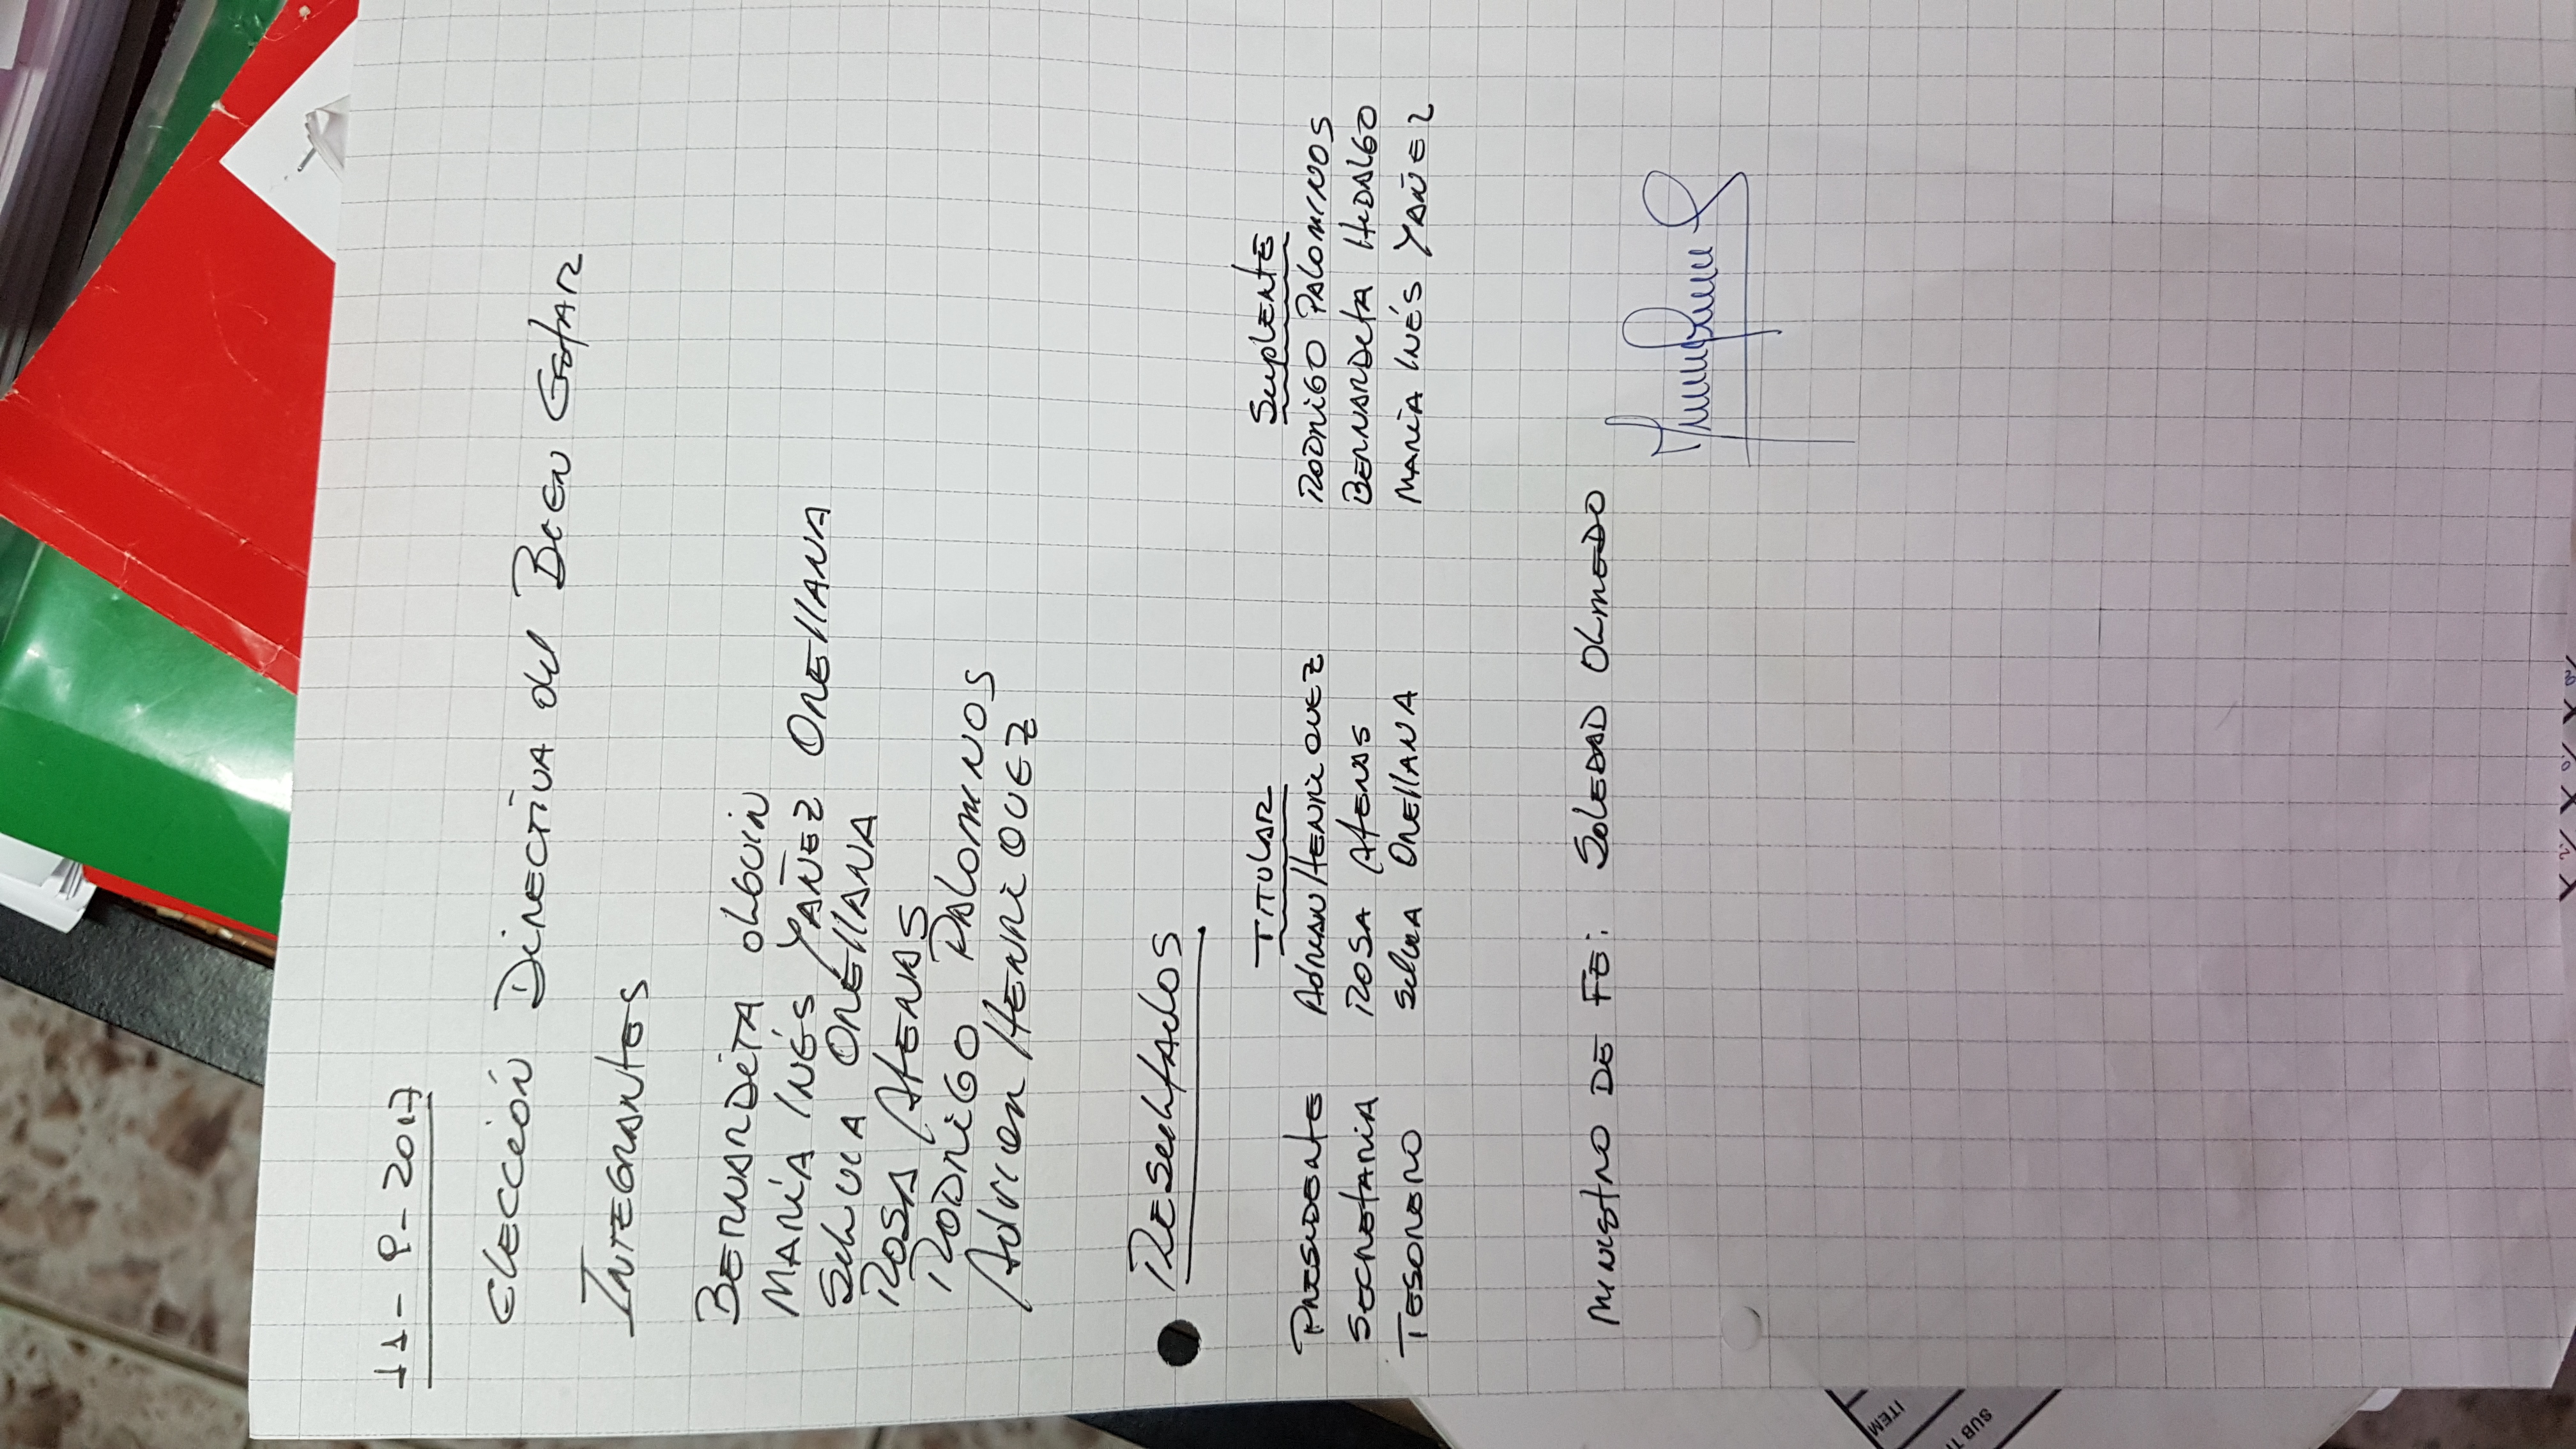 11-8-2017
Elección Directiva del Bien Estar
Integrantes
Bernardita Olguin
María Inés Yañez Orellana
Silvia Orellana
Rosa Atenas
Rodrigo Palominos
Adrian Henriquez
Resultados
Titular Suplente
Presidente Adrian Henriquez Rodrigo Palominos
Secretaria Rosa Atenas Bernardita Hidalgo
Tesorero Silvia Orellana María Inés Yañez
Ministro de Fe: Soledad Olmedo
ITEM